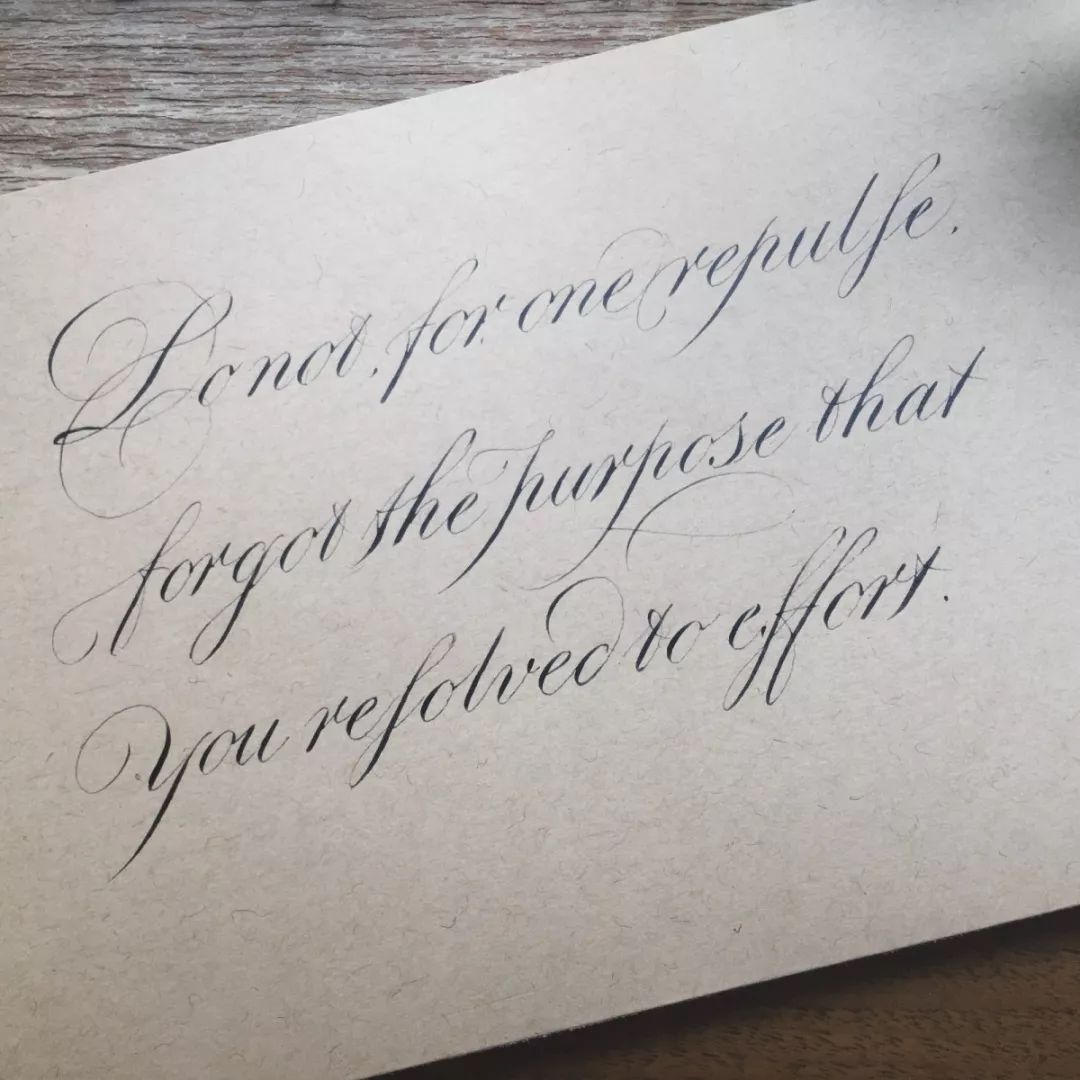 Do not, for one repulse,
forgot the purpose that
you resolved to effort.